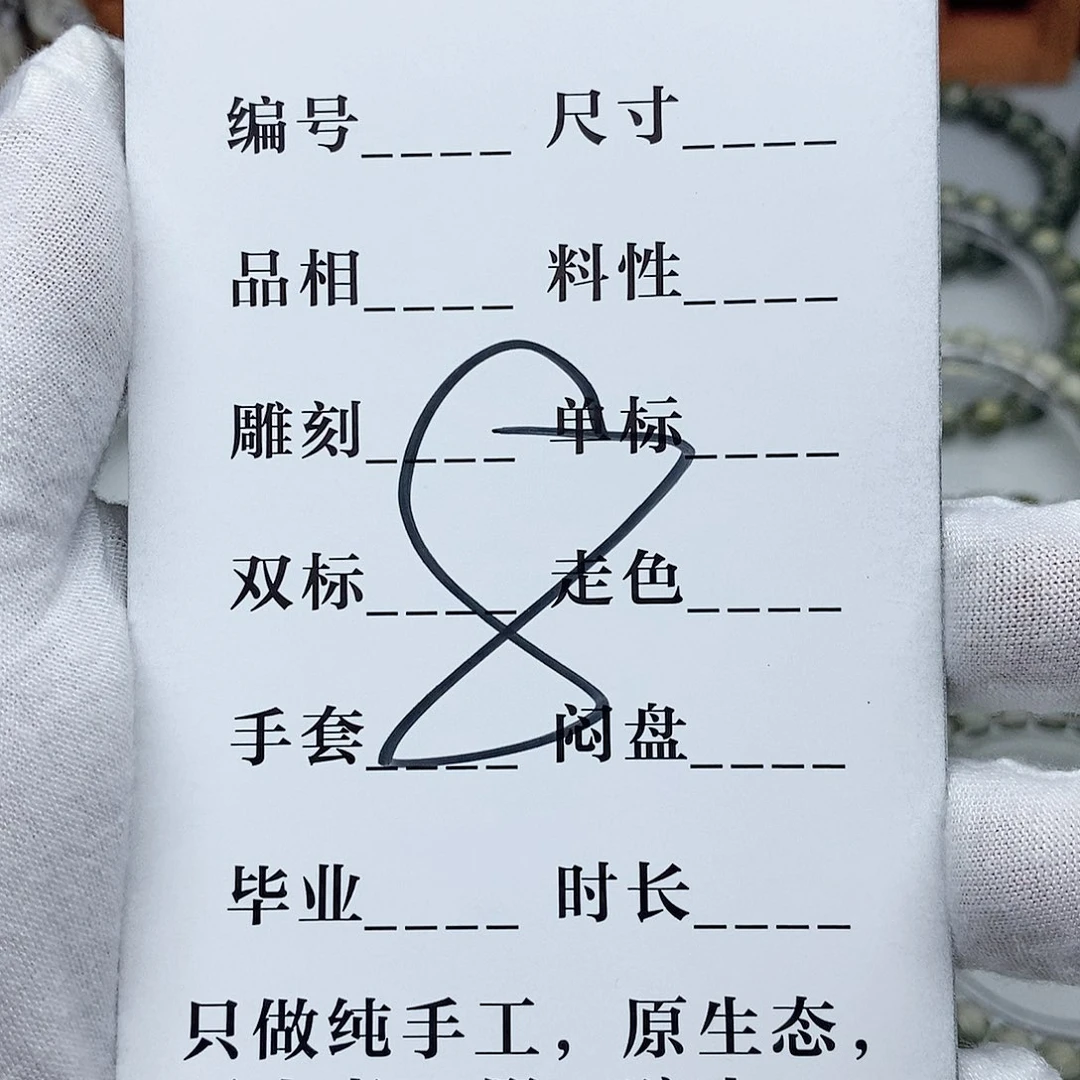 编号____ 尺寸____
品相____ 料性____
雕刻____ 单标____
双标____ 走色____
手套____ 闷盘____
毕业____ 时长____
8
只做纯手工，原生态，